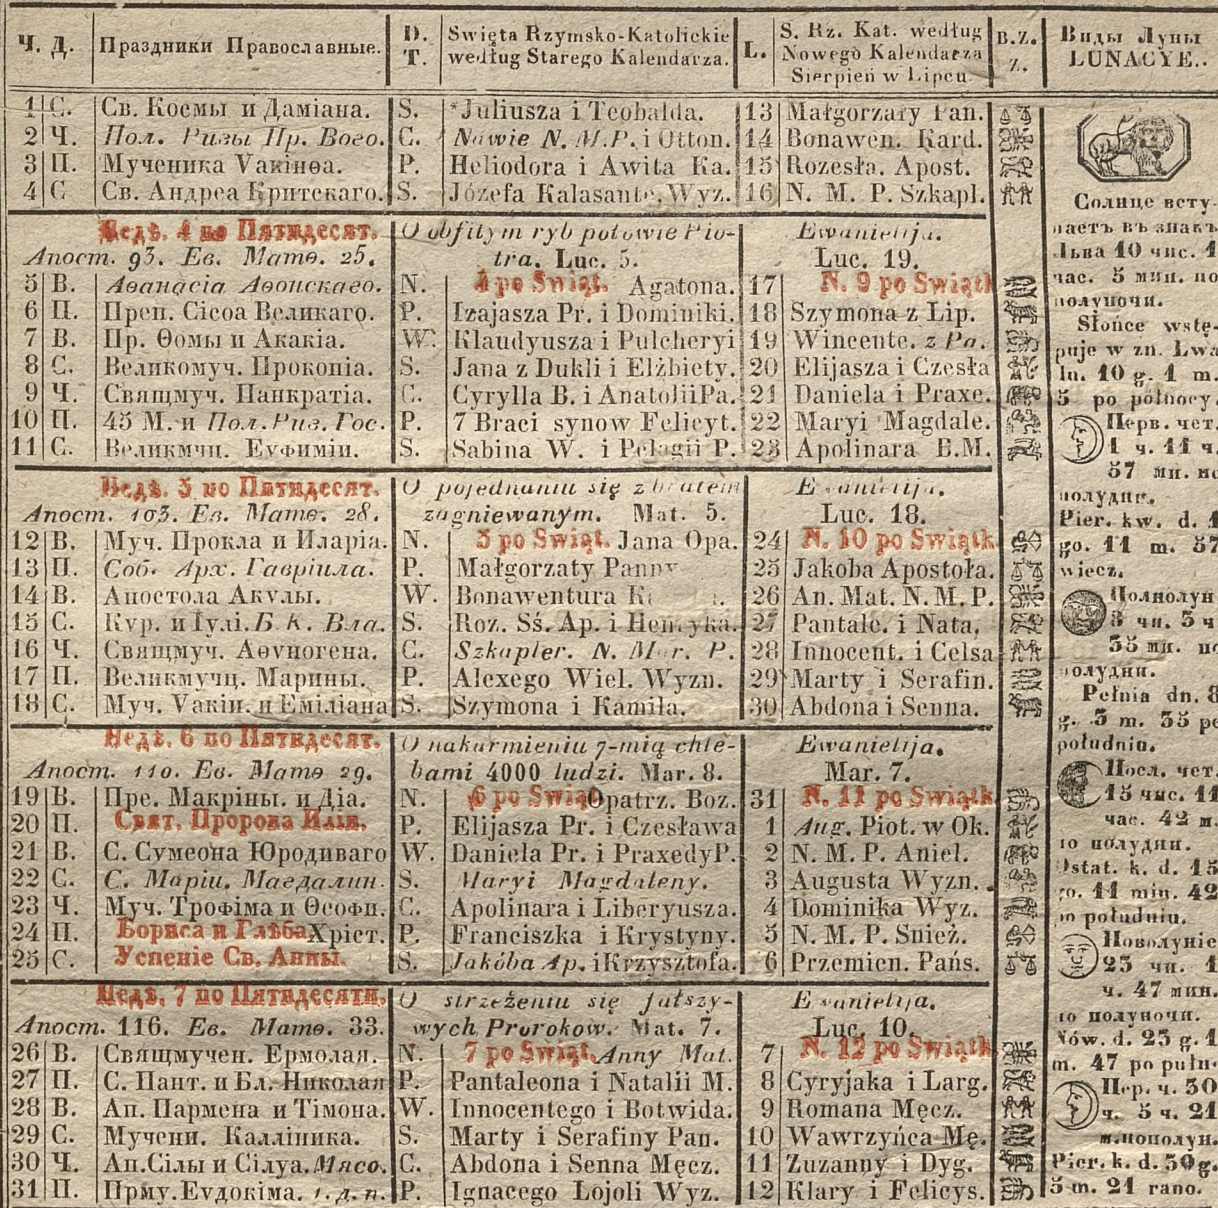 Ч. Д. Праздники Православные. D. T. Swięta Rzymsko-Katolickie według Starego Kalendarza. L. S. Rz. Kat. według Nowego Kalendarza Sierpień w Lipcu B.Z. Z. Виды Луны LUNACYE..
1 С. Св. Космы и Даміана. S. *Juliusza i Teobalda. 13 Małgorzaty Pan.
2 Ч. Пол. Ризы Пр. Bого. C. Nawie N. M.P. i Otton. 14 Bonawen. Kard.
3 П. Мученика Vакінѳа. P. Heliodora i Awita Ka. 15 Rozesła. Apost.
4 С Св. Андреа Критскаго. S. Józefa Kalasant. Wyz. 16 N. M. P. Szkapl.
Недѣ. 4 по Пятидесят. O obfitym ryb połowie Pio- Ewanielija.
Апост. 93. Ев. Матѳ. 25. tra. Luc. 5. Luc. 19.
5 В. Аѳанасіа Аѳонскаго. N. 4 po Swiąt. Agatona. 17 N. 9 po Swiątk
6 П. Преп. Сісоа Великаго. P. Izajasza Pr. i Dominiki. 18 Szymona z Lip.
7 В. Пр. Ѳомы и Акакіа. W. Klaudyusza i Pulcheryi 19 Wincente. z Pa.
8 С. Великомуч. Прокопіа. S. Jana z Dukli i Elżbiety. 20 Elijasza i Czesła
9 Ч. Свящмуч. Панкратіа. C. Cyrylla B. i AnatoliiPa. 21 Daniela i Praxe.
10 П. 45 М. и Пол. Риз. Гос. P. 7 Braci synow Felicyt. 22 Maryi Magdale.
11 С. Великмчц. Еѵфиміи. S. Sabina W. i Pelagii P. 23 Apolinara B.M.
Недѣ. 5 по Пятидесят. O pojednaniu się z bratem Ewanielija.
Апост. 103. Ев. Матѳ. 28. zagniewanym. Mat. 5. Luc. 18.
12 В. Муч. Прокла и Иларіа. N. 5 po Swiąt. Jana Opa. 24 N. 10 po Swiątk
13 П. Соб. Арх. Гавріила. P. Małgorzaty Panny 25 Jakoba Apostoła.
14 В. Апостола Акѵлы. W. Bonawentura 26 An. Mat. N. M. P.
15 С. Кѵр. и Іулі. Б. К. Вла. S. Roz. Sś. Ap. i Henryka. 27 Pantale. i Nata.
16 Ч. Свящмуч. Аѳѵногена. C. Szkapler. N. Mar. P. 28 Innocent. i Celsa
17 П. Великмучц. Марины. P. Alexego Wiel. Wyzn. 29 Marty i Serafin.
18 С. Муч. Vакін. и Еміліана S. Szymona i Kamiła. 30 Abdona i Senna.
Недѣ. 6 по Пятидесят. O nakarmieniu 7-mią chle- Ewanielija.
Апост. 110. Ев. Матѳ 29. bami 4000 ludzi. Mar. 8. Mar. 7.
19 В. Пре. Макріны. и Діа. N. 6 po Swią Opatrz. Boz. 31 N. 11 po Swiątk
20 П. Свят. Пророка Иліи. P. Elijasza Pr. i Czesława 1 Aug. Piot. w Ok.
21 В. С. Сѵмеона Юродиваго W. Daniela Pr. i PraxedyP. 2 N. M. P. Aniel.
22 С. С. Маріи. Магдалин. S. Maryi Magdaleny. 3 Augusta Wyzn.
23 Ч. Муч. Трофіма и Ѳеофи. C. Apolinara i Liberyusza. 4 Dominika Wyz.
24 П. Бориса и Глѣба Хріст. P. Franciszka i Krystyny. 5 N. M. P. Snież.
25 С. Успеніе Св. Анны. S. Jakóba Ap. i Krzysztofa. 6 Przemien. Pańs.
Недѣ. 7 по Пятидесяти. O strzeżeniu się fałszy- Ewanielija.
Апост. 116. Ев. Матѳ. 33. wych Prorokow. Mat. 7. Luc. 10.
26 В. Свящмучен. Ермолая. N. 7 po Swiąt. Anny Mat. 7 N. 12 po Swiątk
27 П. С. Пант. и Бл. Николая P. Pantaleona i Natalii M. 8 Cyryjaka i Larg.
28 В. Ап. Пармена и Тімона. W. Innocentego i Botwida. 9 Romana Męcz.
29 С. Мучени. Калліника. S. Marty i Serafiny Pan. 10 Wawrzyńca Mę.
30 Ч. Ап.Сілы и Сілуа. Мясо. C. Abdona i Senna Męcz. 11 Zuzanny i Dyg.
31 П. Прму.Еѵдокіма. г. д. п. P. Ignacego Lojoli Wyz. 12 Klary i Felicys.
Солнце всту-
паетъ въ знакъ
Льва 10 чис. 1
час. 5 мин. по
полуночи.
Słońce wstę-
puje w zn. Lwa
dn. 10 g. 1 m.
5 po północy.
Перв. чет.
1 ч. 11 ч.
57 ми. по
полудни.
Pier. kw. d. 1
go. 11 m. 57
wiecz.
Полнолун
8 чи. 3 ч
35 ми. по
полудни.
Pełnia dn. 8
g. 3 m. 35 po
południu.
Посл. чет.
15 чис. 11
час. 42 м.
по полудни.
Ostat. k. d. 15
go. 11 min. 42
po południu.
Новолуніе
23 чи. 1
ч. 47 мин.
по полуночи.
Nów. d. 23 g. 1
m. 47 po pułn-
Пер. ч. 30
ч. 5 ч. 21
м.пополун.
Pier. k. d. 30g.
5 m. 21 rano.